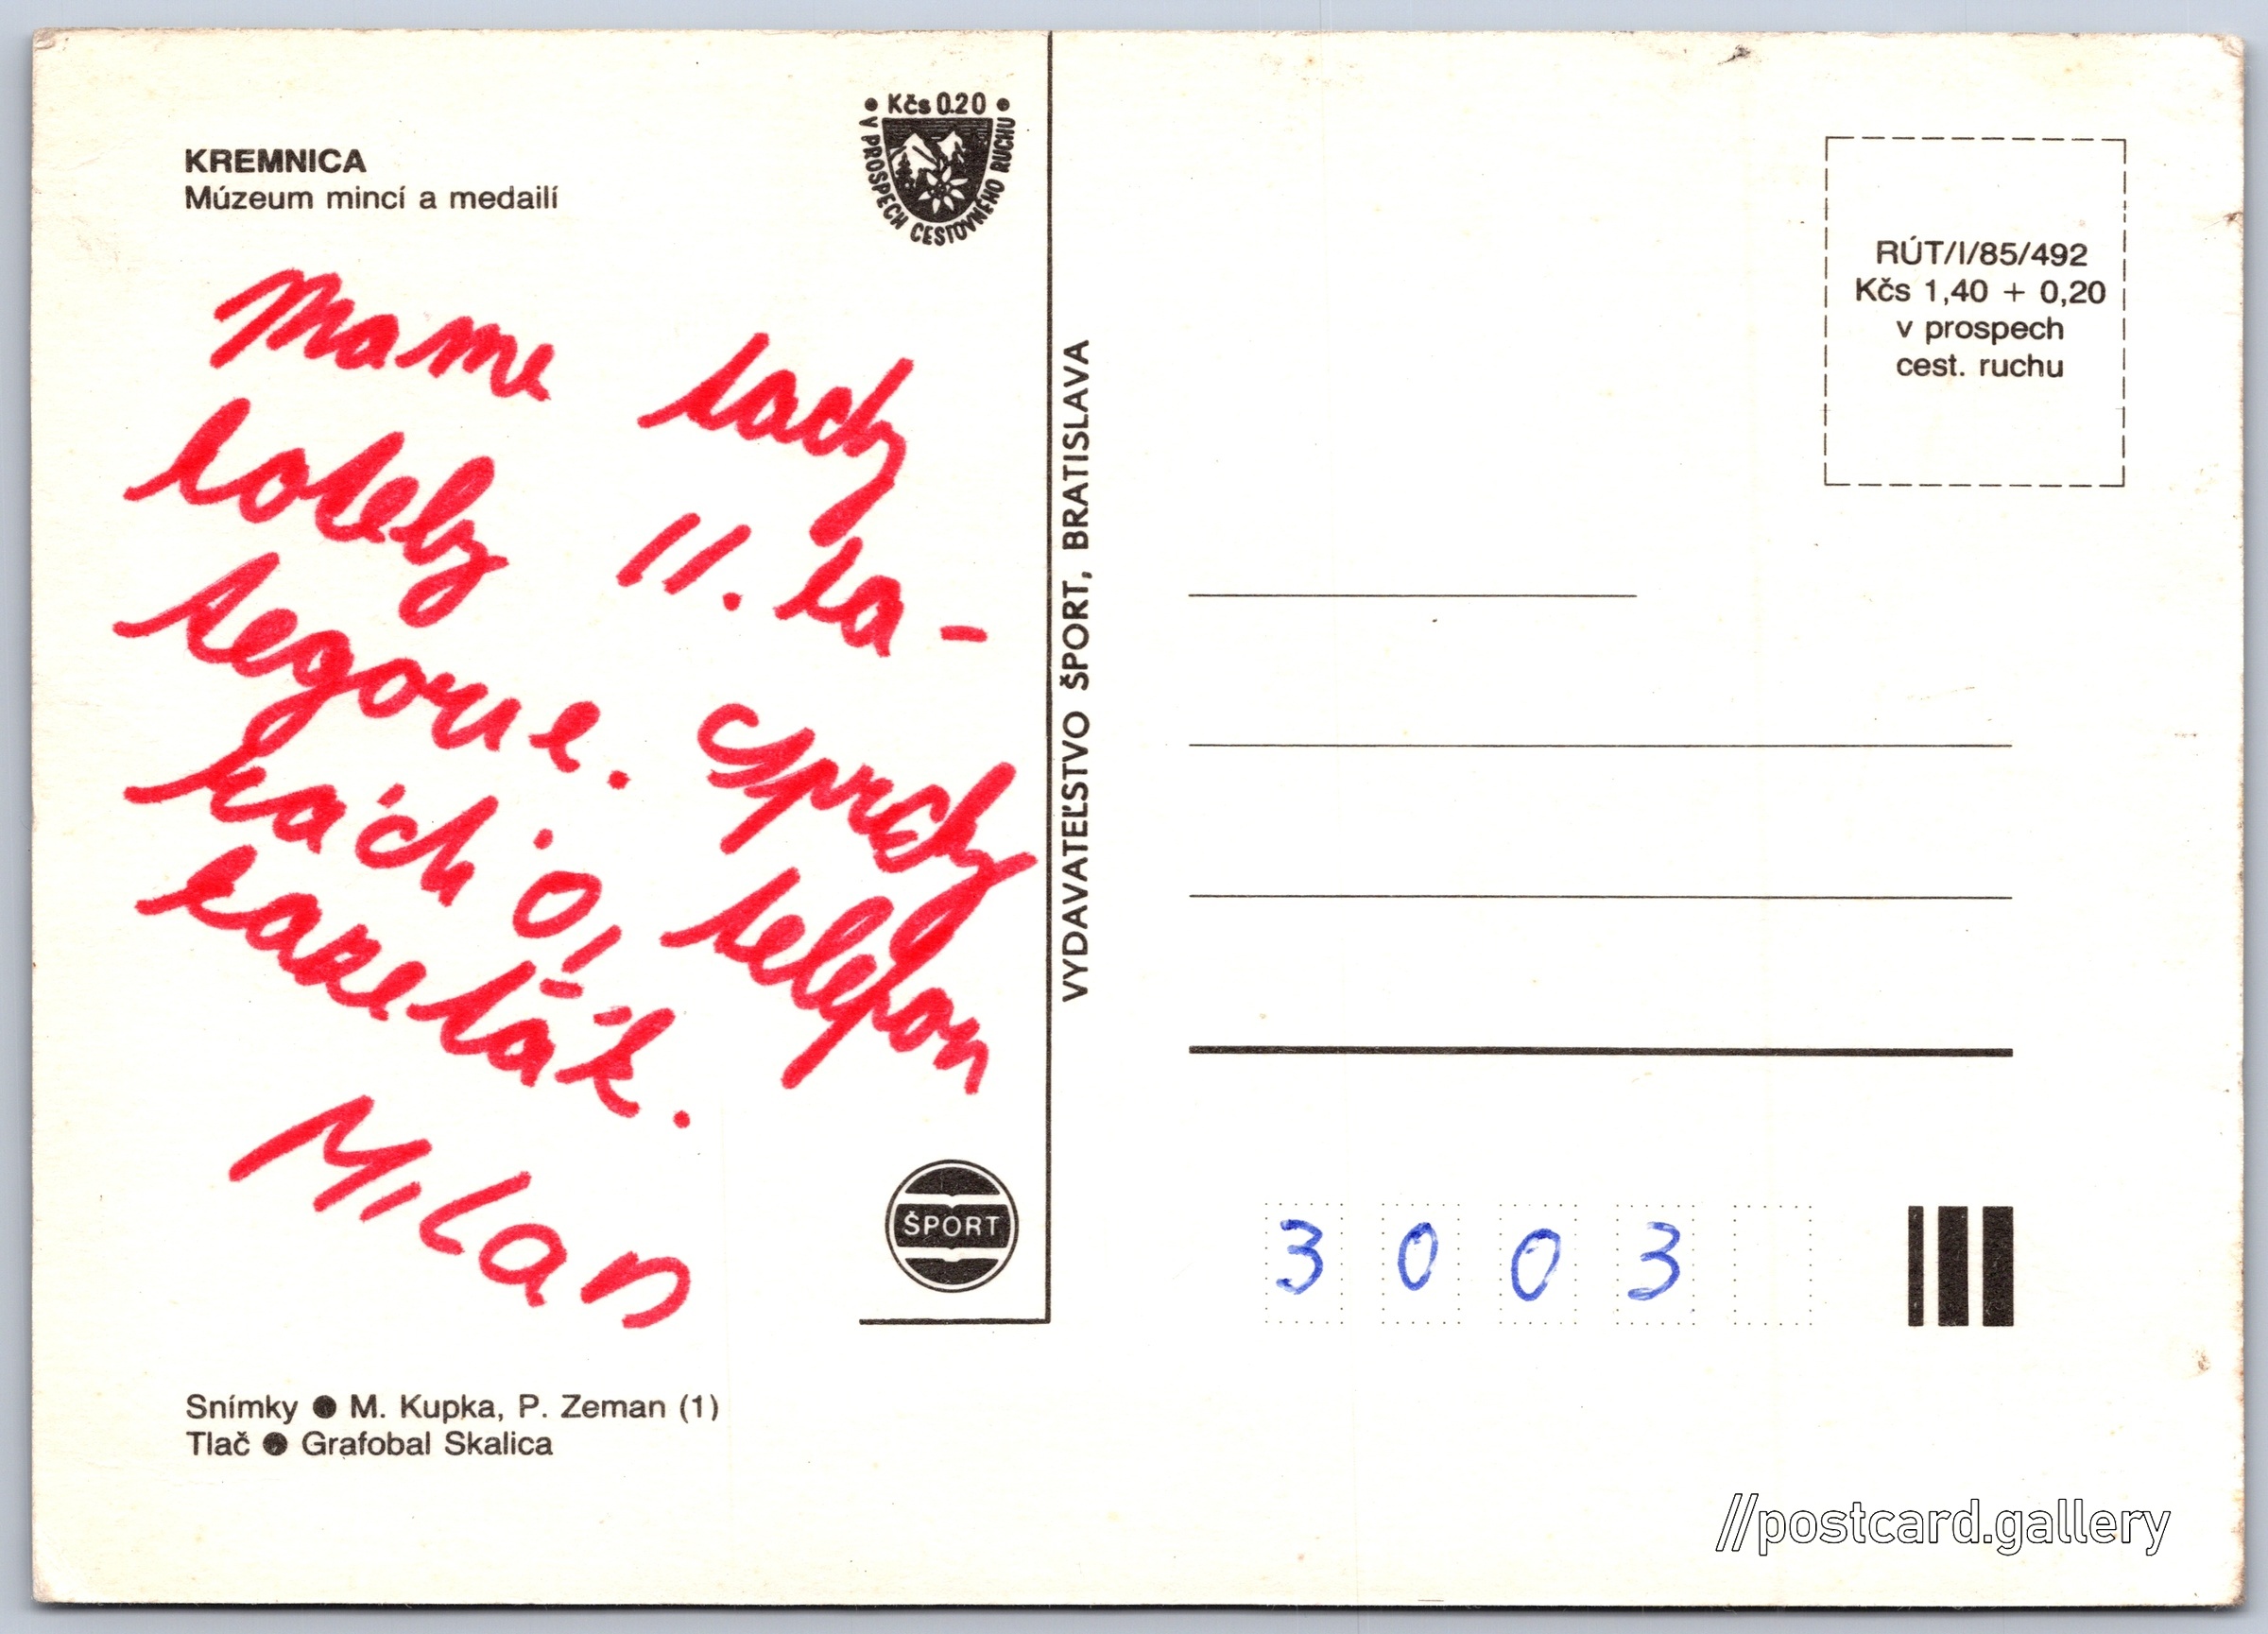 KREMNICA
Múzeum mincí a medailí
• Kčs 0.20 •
V PROSPECH CESTOVNÉHO RUCHU
mame tady
11. ka-
tegorie. sprchy
telefon
kazeťák.
Milan
ŠPORT
Snímky ● M. Kupka, P. Zeman (1)
Tlač ● Grafobal Skalica
VYDAVATEĽSTVO ŠPORT, BRATISLAVA
RÚT/I/85/492
Kčs 1,40 + 0,20
v prospech
cest. ruchu
3 0 0 3
//postcard.gallery